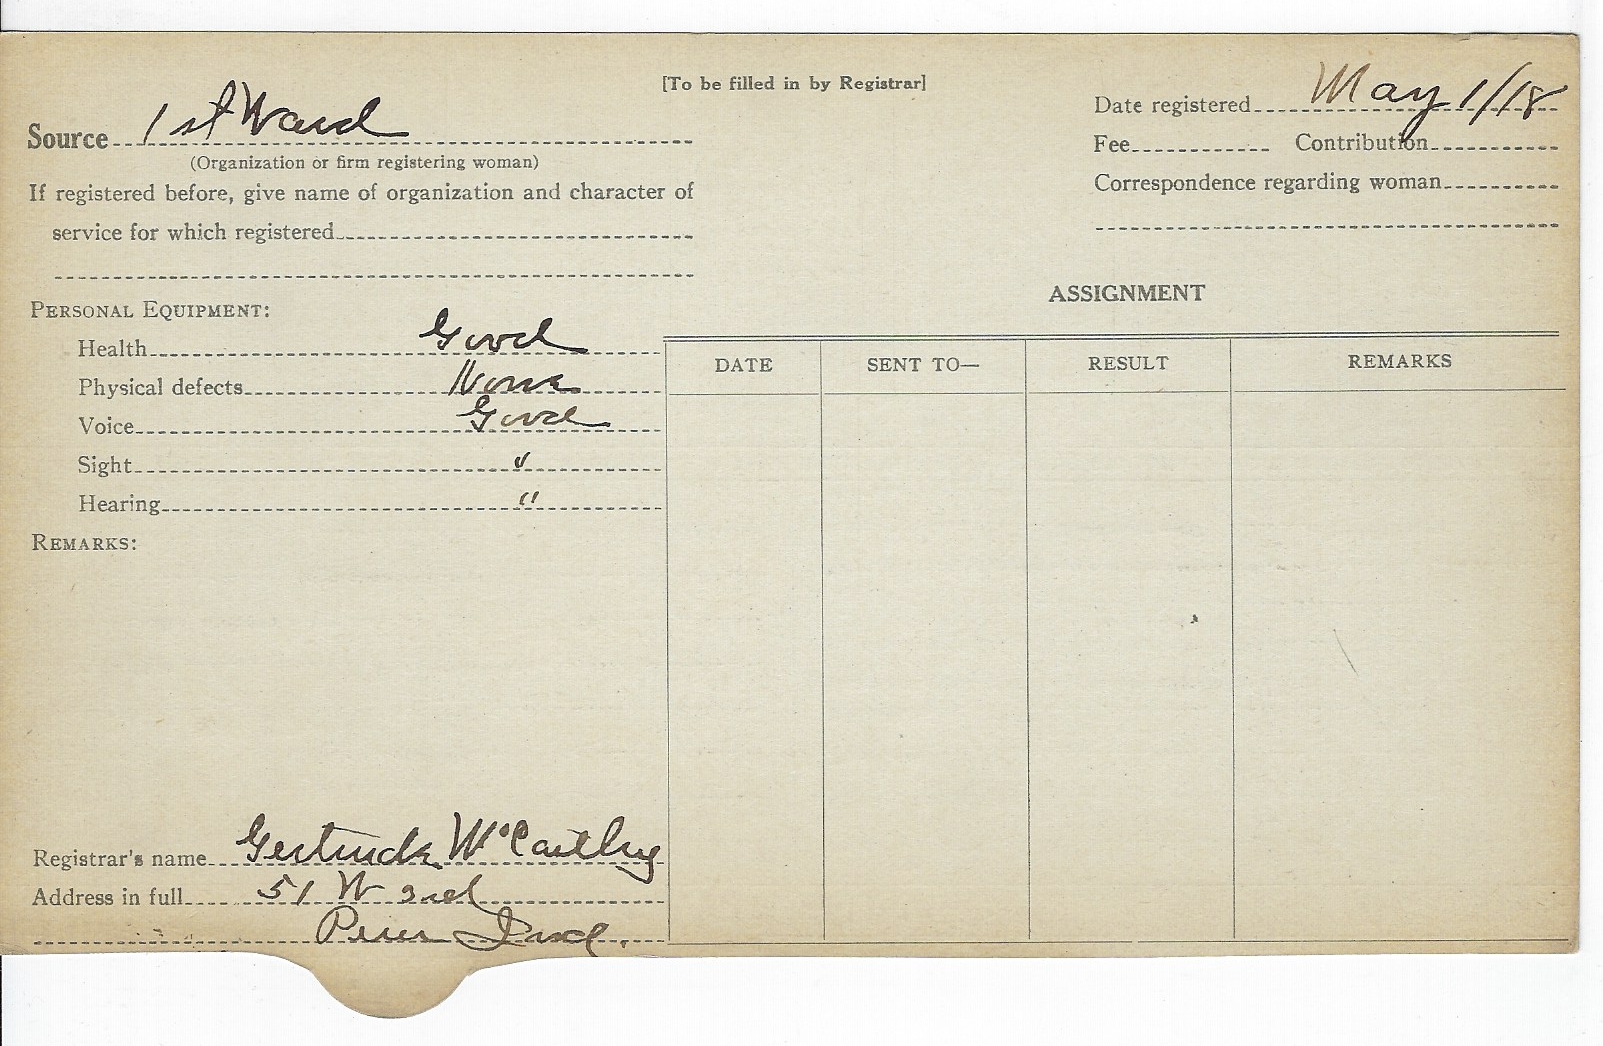 [To be filled in by Registrar]
Source 1st Ward
(Organization or firm registering woman)
If registered before, give name of organization and character of
service for which registered
Date registered May 1/18
Fee Contribution
Correspondence regarding woman
PERSONAL EQUIPMENT:
Health Good
Physical defects None
Voice Good
Sight "
Hearing "
REMARKS:
Registrar's name Gertrude McCarthy
Address in full 51 W 3rd
Peru Ind.
ASSIGNMENT
DATE SENT TO— RESULT REMARKS